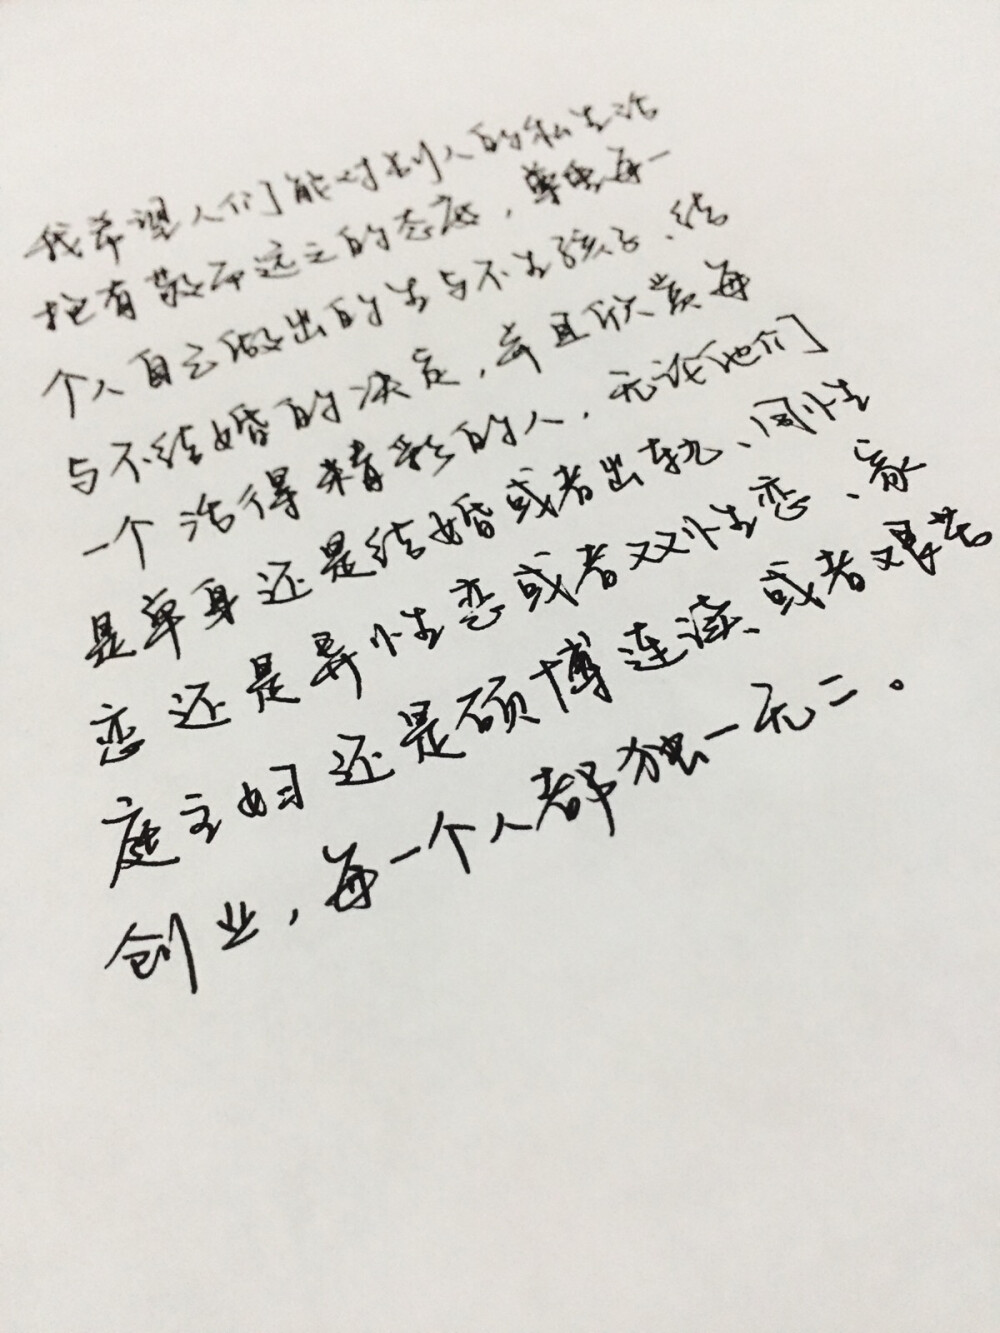 我希望人们能对别人的私生活
抱有敬而远之的态度，尊重每一
个人自己做出的生与不生孩子、结
与不结婚的决定，并且欣赏每
一个活得精彩的人，无论他们
是单身还是结婚或者出轨、同性
恋还是异性恋或者双性恋、家
庭主妇还是硕博连读、或者艰苦
创业，每一个人都独一无二。